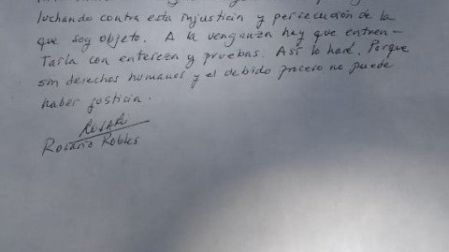 luchando contra esta injusticia y persecución de la
que soy objeto. A la venganza hay que enfren-
tarla con entereza y pruebas. Así lo haré. Porque
sin derechos humanos y el debido proceso no puede
haber justicia.
Rosario Robles